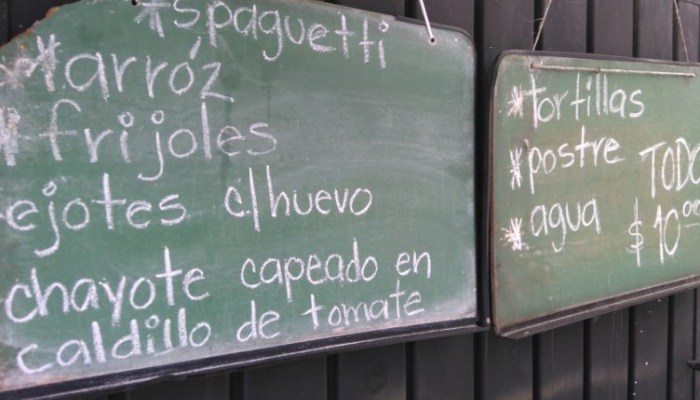 *spaguetti
*arróz
*frijoles
ejotes c/huevo
chayote capeado en
caldillo de tomate
*tortillas
*postre
*agua
TODO
$10.00